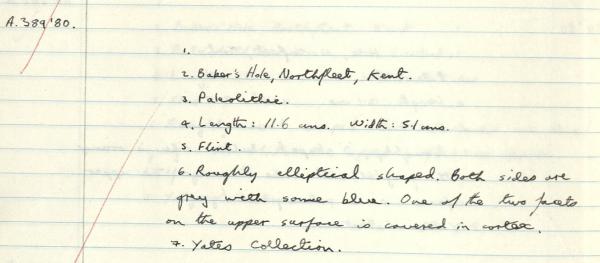 A.389'80.
1.
2. Baker's Hole, Northfleet, Kent.
3. Paleolithic.
4. Length: 11.6 cms. Width: 5.1 cms.
5. Flint.
6. Roughly elliptical shaped. Both sides are
grey with some blue. One of the two facets
on the upper surface is covered in cortex.
7. Yates Collection.